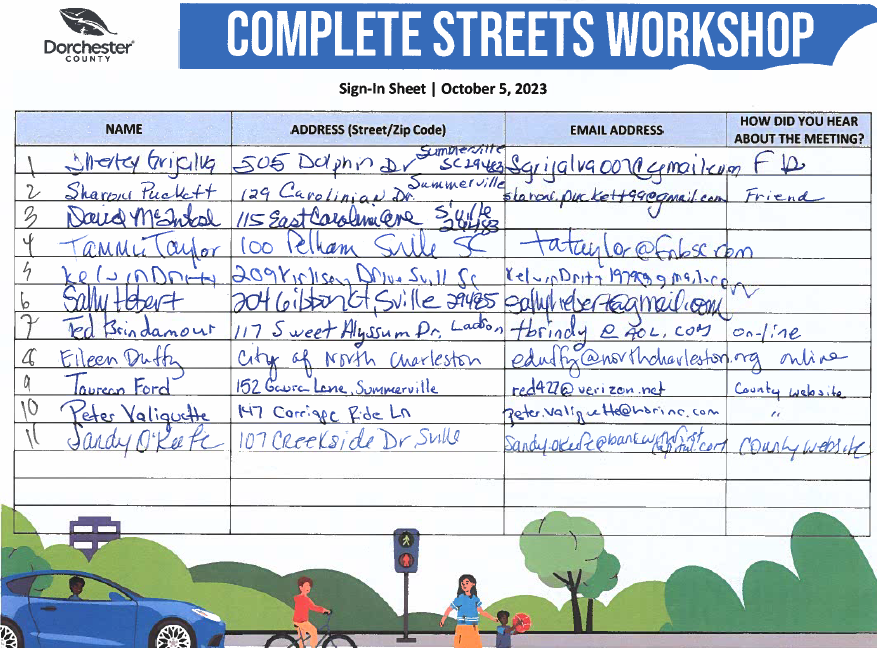 Dorchester
COUNTY
COMPLETE STREETS WORKSHOP
Sign-In Sheet | October 5, 2023
NAME ADDRESS (Street/Zip Code) EMAIL ADDRESS HOW DID YOU HEAR ABOUT THE MEETING?
1 Grijalva 505 Dolphin Dr Summerville SC 29483 Sgrijalva007@gmail.com
2 Sharon Puckett 129 Carolinian Dr. Summerville sharon.puckett99@gmail.com Friend
3 David 115 East Carolina Ave S'ville 29483
4 Tammie Taylor 100 Pelham Sville SC tataylor@fnbsc.com
5 Kelvin 209 Drive Svill Sc
6 Sally Hebert 204 Gibbon Ct, Sville 29485 sallyhebert@gmail.com
7 Ted Brindamour 117 Sweet Alyssum Dr, Ladson tbrindy@AOL.COM on-line
8 Eileen Duffy City of North Charleston eduffy@northcharleston.org online
9 Taurean Ford 152 Gaura Lane, Summerville red427@verizon.net County website
10 Peter Valiquette 147 Carriage Ride Ln peter.valiquette@hdrinc.com "
11 Sandy O'Keefe 107 Creekside Dr Sville County website